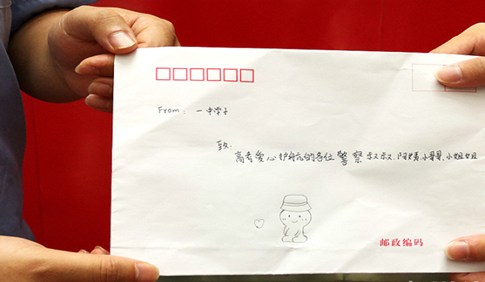 From: 一中学子
致:
高考爱心护航的各位警察叔叔、阿姨、小哥哥、小姐姐
邮政编码